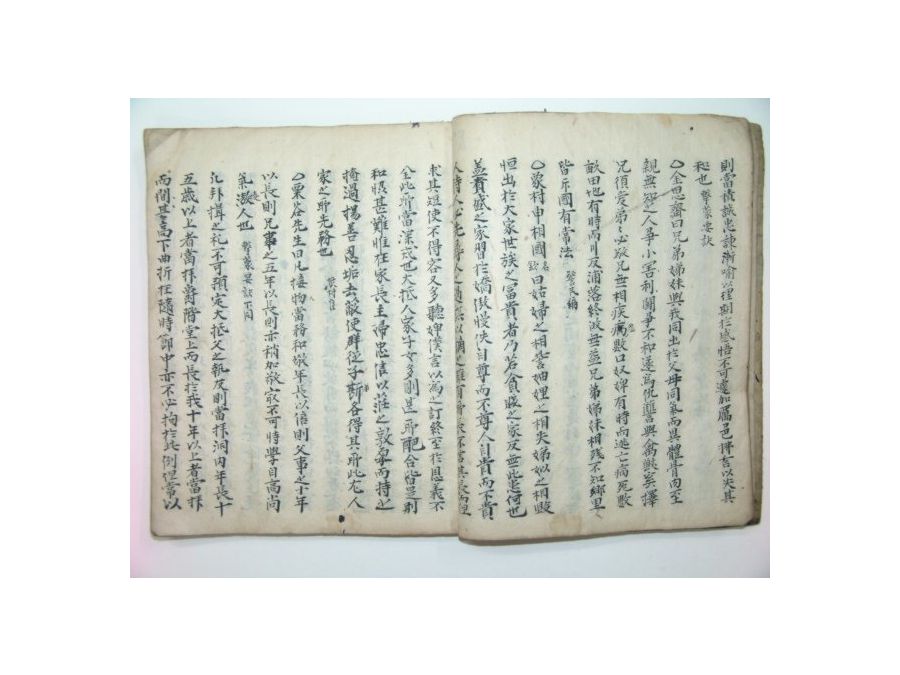 則當積誠忠諫漸喩以理期於感悟不可遽加厲色拂言以失其
和也 擊蒙要訣
○金思齋曰兄弟姊妹與我同出於父母同氣而異體骨肉至
親無如之人爭小害利鬪爭不和遂爲仇讐與禽獸奚擇
兄須愛弟弟必敬兄無相疾病數口奴婢有時而逃亡病死數
畝田地有時而川反浦落終歸無益兄弟姊妹相殘不知鄕里
皆斥國有常法 警民編
○象村申相國 名欽 曰姑婦之相詈妯娌之相失婦姒之相
恒出於大家世族之富貴者乃若貧賤之家反無此患何也
蓋貴戚之家習於驕傲慢佚自尊而不尊人自貴而不貴
求其短使不得容又多聽婢僕言以爲之訂終至於恩義不
全此所當深戒也大抵人家子女多則甚所配合皆是別
和誤甚難惟在家長主婦忠信以莊之敦而持之
掩過揚善恩垢去蔽使群從子斯各得其所此尤人
家之所先務也 象村
○栗谷先生曰凡接物當務和敬年長以倍則父事之十年
以長則兄事之五年以長則亦稍加敬最不可恃學自高尚
氣凌人也 擊蒙要訣下同
凡拜揖之礼不可預定大抵父之執友則當拜洞內年長十
五歲以上者當拜爵階堂上而長於我十年以上者當拜
而間其高下曲折在隨時節中亦不必拘於此例但常以